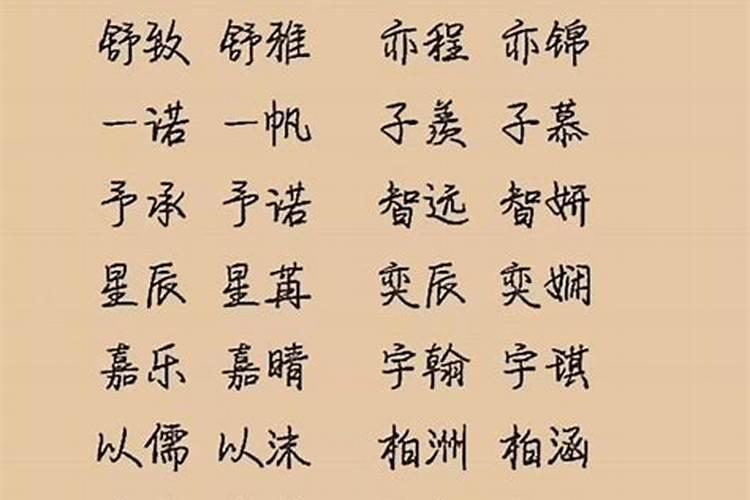 舒致 舒雅 亦程 亦锦
一诺 一帆 子羡 子慕
予承 予诺 智远 智妍
星辰 星苒 奕辰 奕娴
嘉乐 嘉晴 宇翰 宇琪
以儒 以沫 柏洲 柏涵